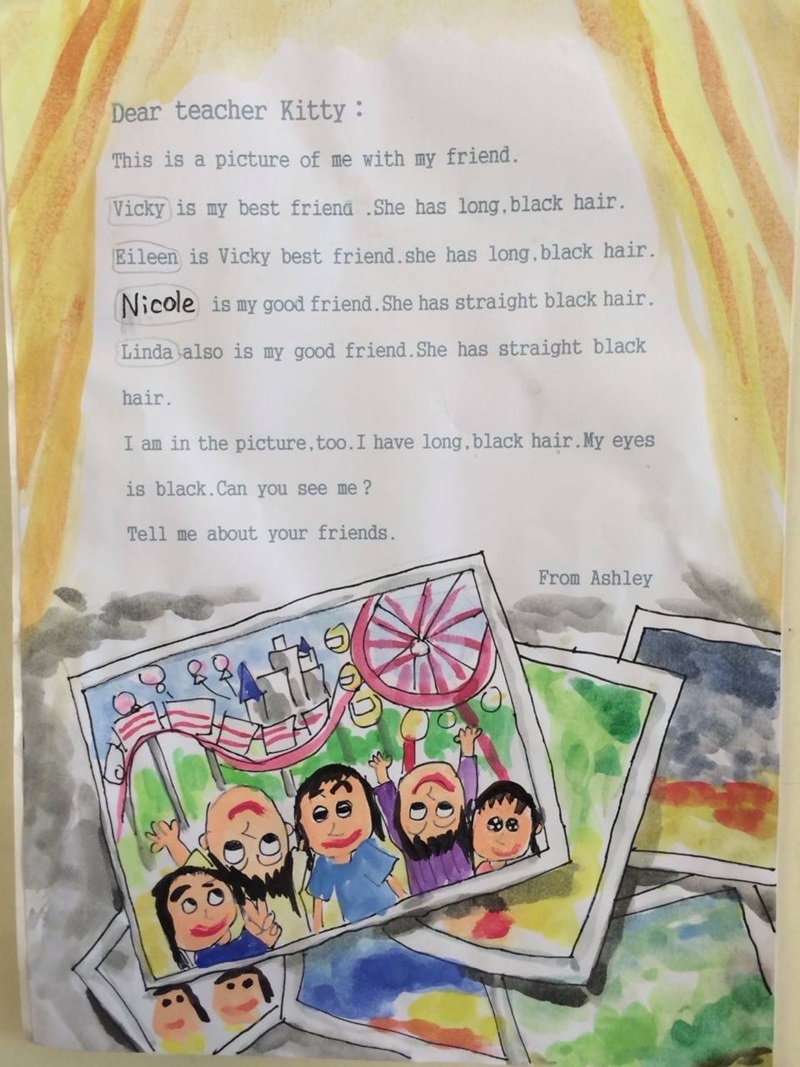 Dear teacher Kitty:
This is a picture of me with my friend.
Vicky is my best friend .She has long,black hair.
Eileen is Vicky best friend.she has long,black hair.
Nicole is my good friend.She has straight black hair.
Linda also is my good friend.She has straight black
hair.
I am in the picture,too.I have long,black hair.My eyes
is black.Can you see me?
Tell me about your friends.
From Ashley